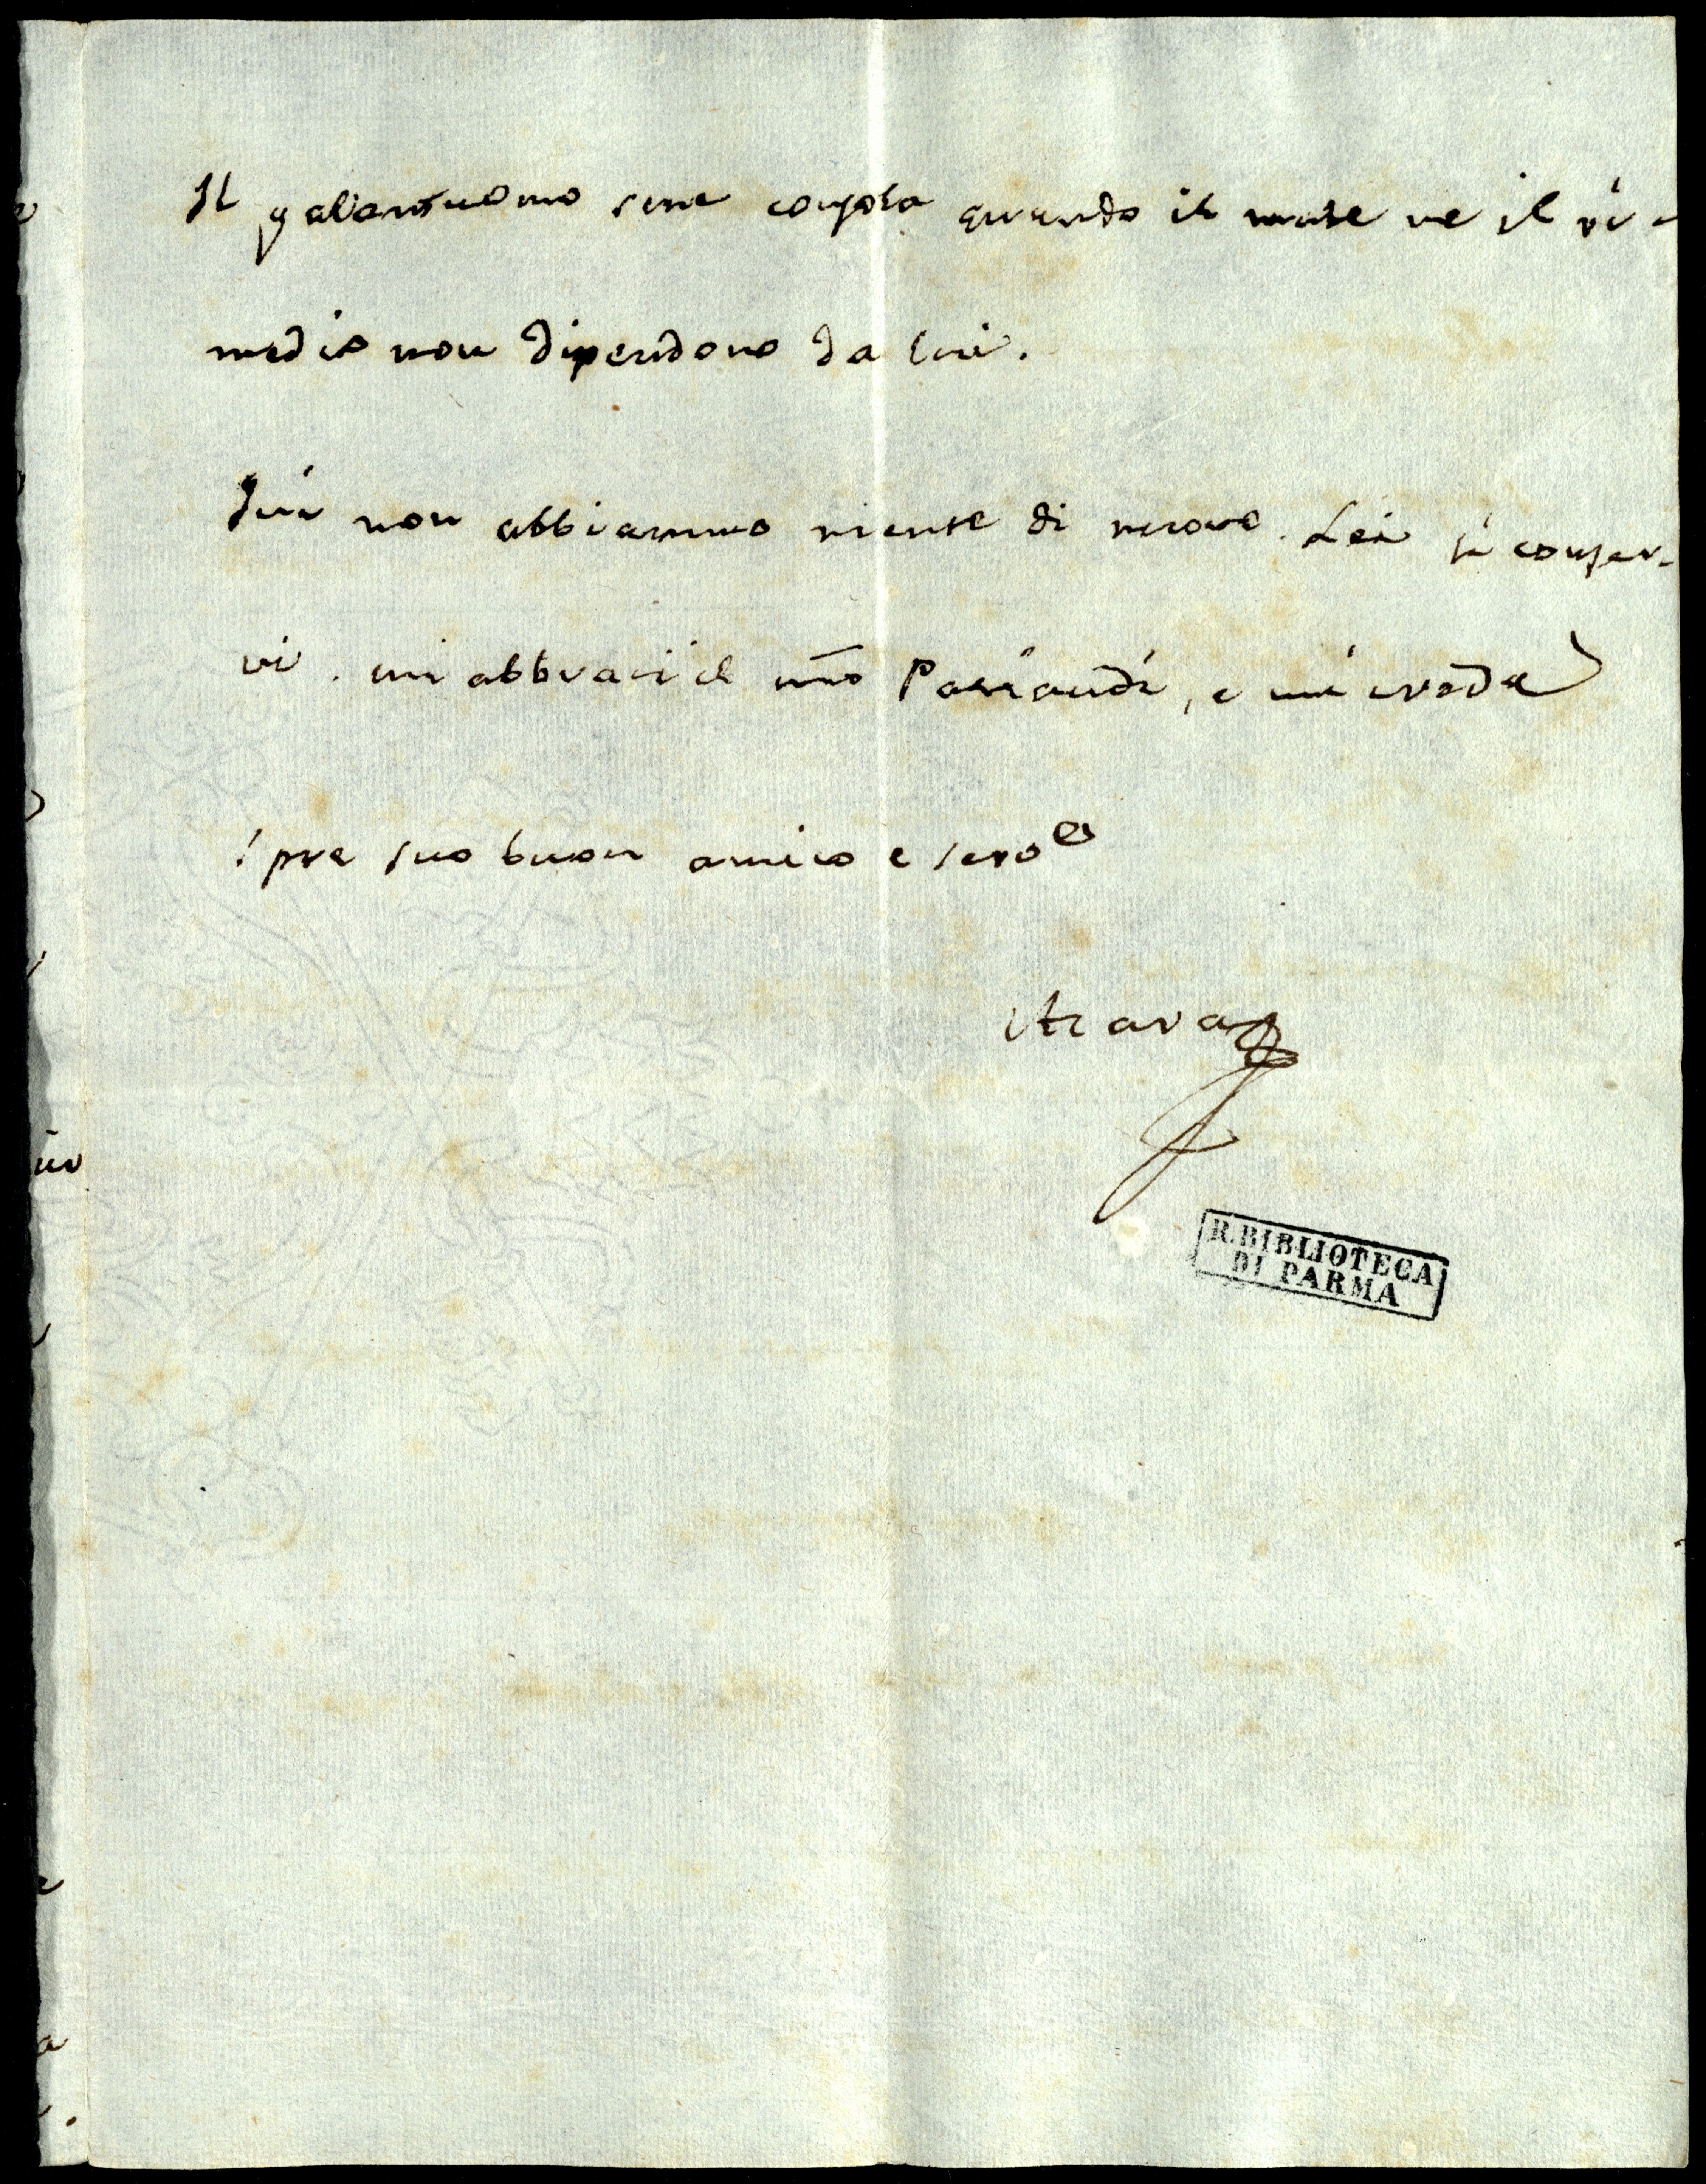 Il galantuomo se ne consola quando il male ne il ri-
medio non dipendono da lui.
Qui non abbiammo niente di nuovo. Lei si conser-
vi. mi abbracci il nro Paciaudi, e mi creda
spre suo buon amico e servo
Azara
R. BIBLIOTECA
DI PARMA